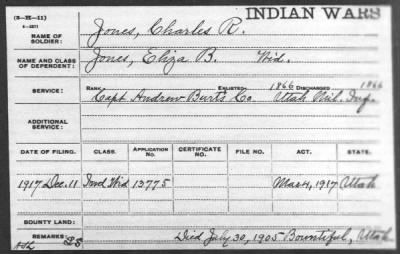 (3-H-11)
INDIAN WARS
NAME OF SOLDIER: Jones, Charles R.
NAME AND CLASS OF DEPENDENT: Jones, Eliza B. Wid.
SERVICE: RANK ENLISTED 1866 DISCHARGED 1866
Capt Andrew Burts Co Utah Mil. Inf.
ADDITIONAL SERVICE:
DATE OF FILING. CLASS. APPLICATION No. CERTIFICATE No. FILE NO. ACT. STATE.
1917 Dec. 11 Ind Wid 13775 Mar 4, 1917 Utah
BOUNTY LAND:
REMARKS: Died July 30, 1905 Bountiful, Utah